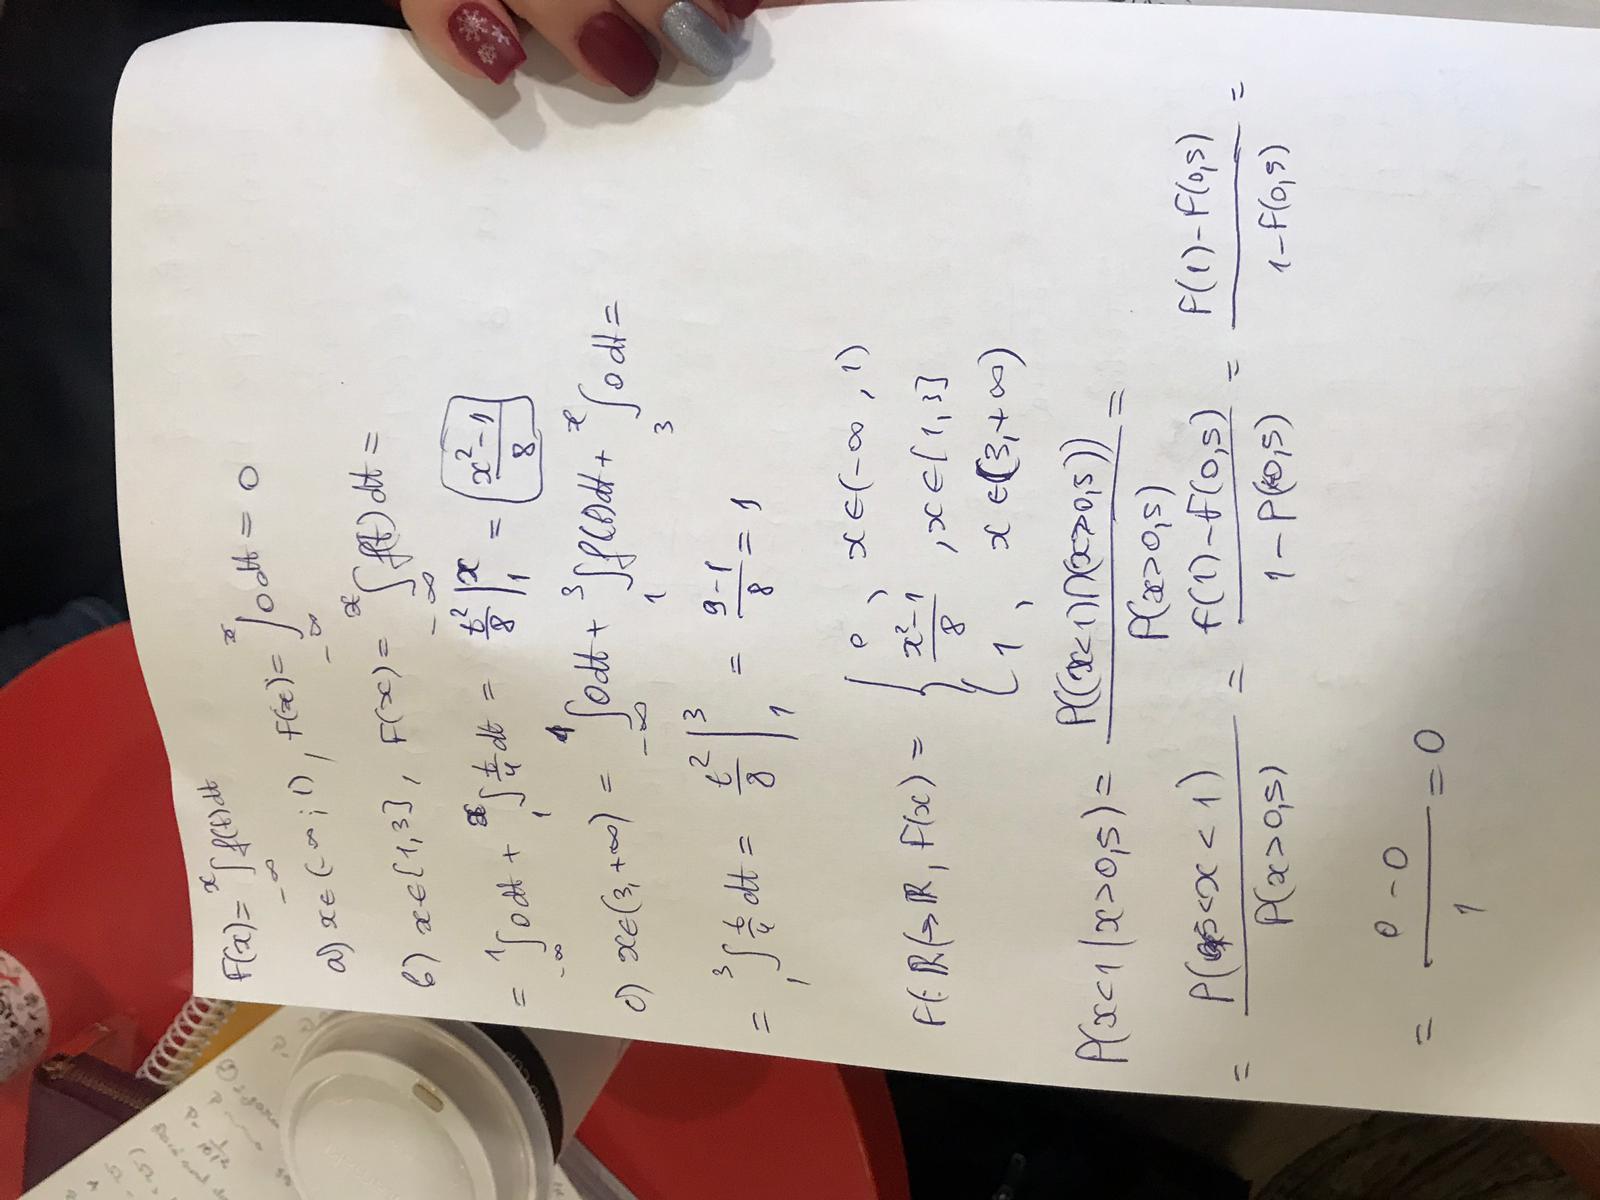 F(x) = ∫_{-∞}^{x} f(t)dt
a) x∈(-∞;1), F(x) = ∫_{-∞}^{x} 0dt = 0
b) x∈[1,3], F(x) = ∫_{-∞}^{x} f(t)dt =
= ∫_{-∞}^{1} 0dt + ∫_{1}^{x} t/4 dt = t²/8 |_{1}^{x} = (x²-1)/8
c) x∈(3,+∞) = ∫_{-∞}^{1} 0dt + ∫_{1}^{3} f(t)dt + ∫_{3}^{x} 0dt =
= ∫_{1}^{3} t/4 dt = t²/8 |_{1}^{3} = (9-1)/8 = 1
F: R→R, F(x) = { 0, x∈(-∞,1)
(x²-1)/8, x∈[1,3]
1, x∈(3,+∞)
P(x<1|x>0,5) = P((x<1)∩(x>0,5))/P(x>0,5) =
= P(0,5<x<1)/P(x>0,5) = (F(1)-F(0,5))/(1-P(0,5)) = (F(1)-F(0,5))/(1-F(0,5)) =
= (0-0)/1 = 0